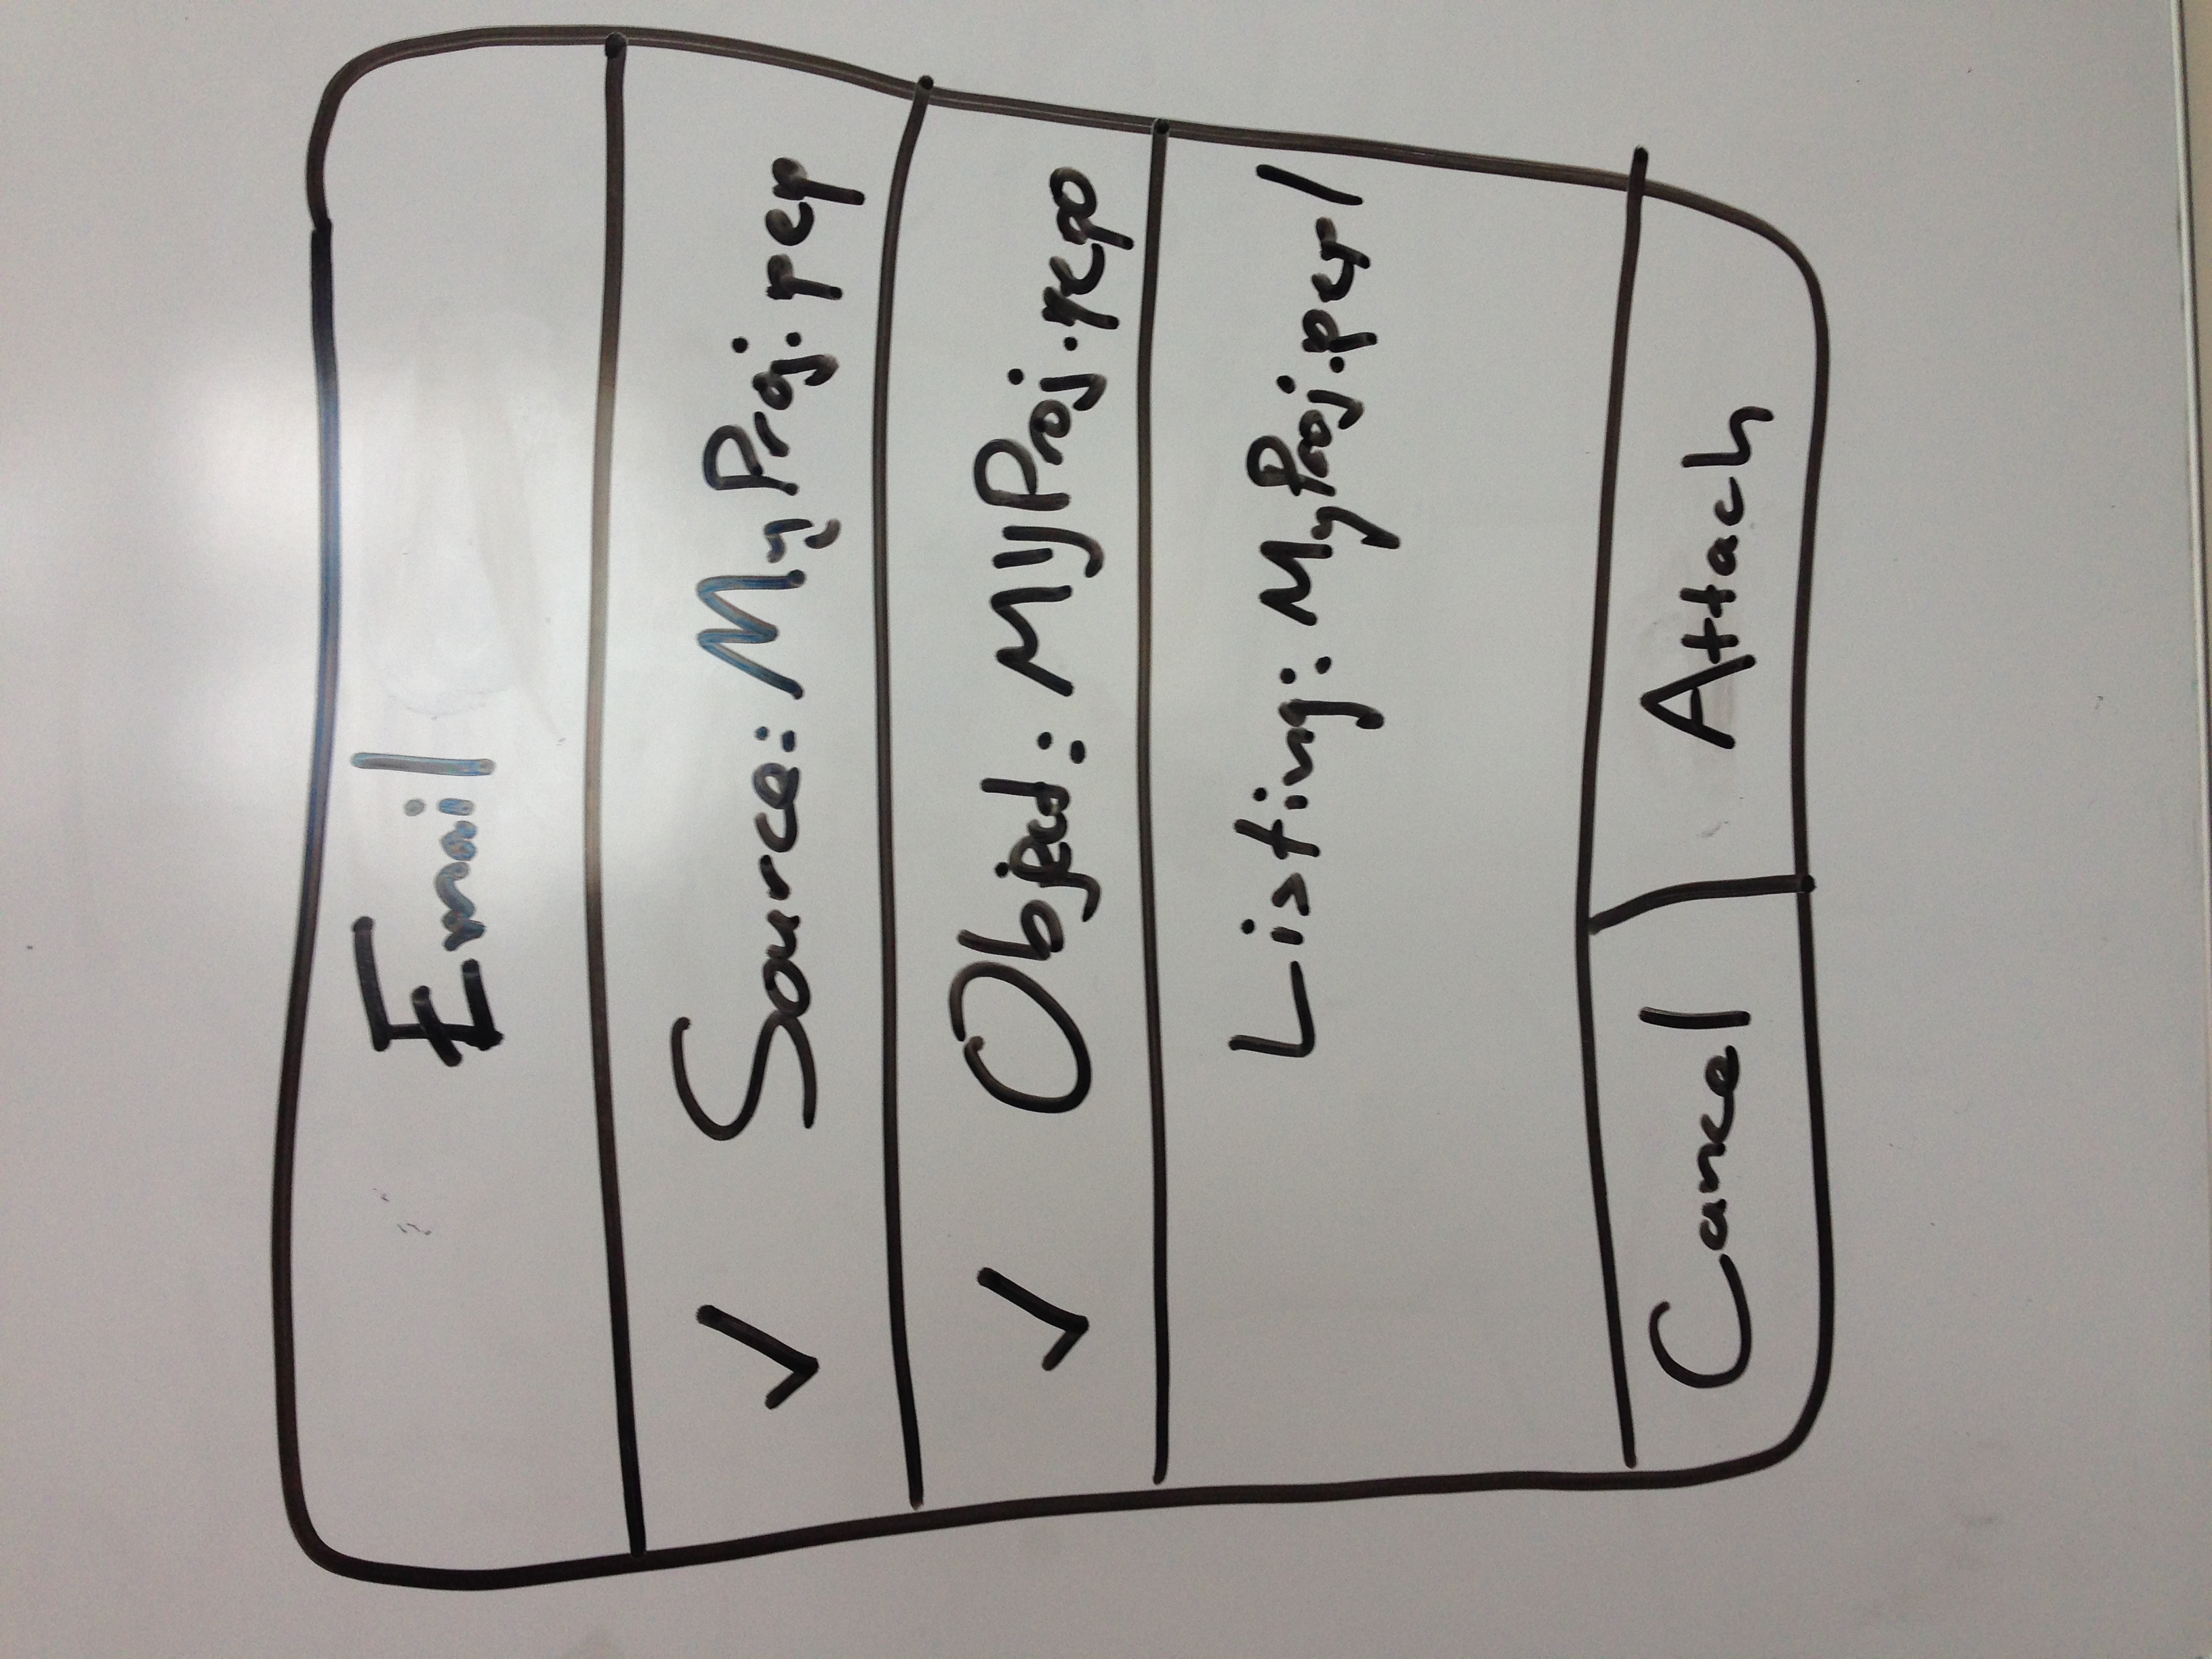 Email
✓ Source: MyProj.pep
✓ Object: MyProj.pepo
Listing: MyProj.pepl
Cancel Attach